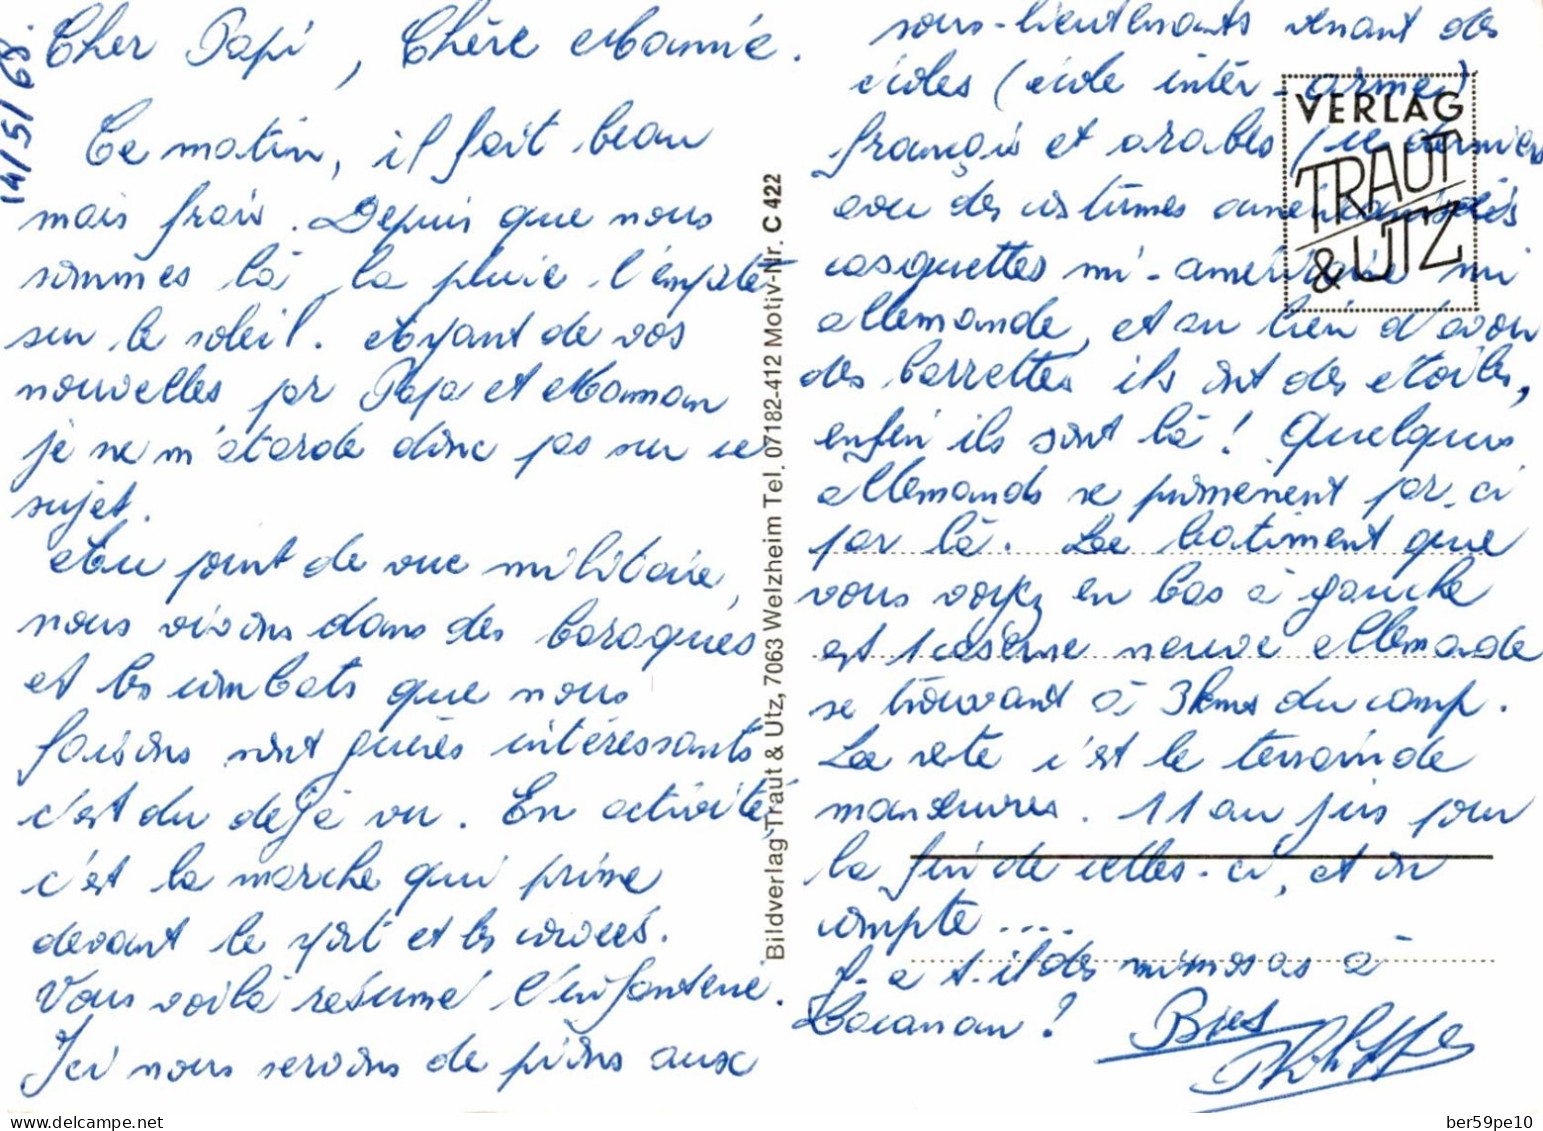 14/5/68.
Cher Papi, Chère Mamie.
Ce matin, il fait beau
mais frais. Depuis que nous
sommes là la pluie l'emporte
sur le soleil. Ayant de vos
nouvelles par Papa et Maman
je ne m'atarde donc pas sur ce
sujet.
Au point de vue militaire,
nous vivons dans des baraques
et les combats que nous
faisons sont guères intéressants
c'est du déjà vu. En activité,
c'est la marche qui prime
devant le sport et les corvées.
Vous voilà résumé l'infanterie.
Ici nous servons de pions aux
sous-lieutenants venant des
écoles (école inter-arme)
français et arabes (ce dernier
avec des costumes américanisés
casquettes mi-américaine mi
allemande, et au lieu d'avoir
des barrettes ils ont des étoiles,
enfin ils sont là! Quelques
allemands se promènent par-ci
par là. Le batiment que
vous voyez en bas à gauche
est 1 caserne neuve allemande
se trouvant à 3 kms du camp.
Le reste c'est le terrain de
manœuvres. 11 au jus pour
la fin de celles-ci, et on
compte ....
Y-a t-il des mimosas à
Lacanau?
Bises
Philippe
VERLAG
TRAUT
& UTZ
Bildverlag Traut & Utz, 7063 Welzheim Tel. 07182-412 Motiv-Nr. C 422
delcampe.net
ber59pe10